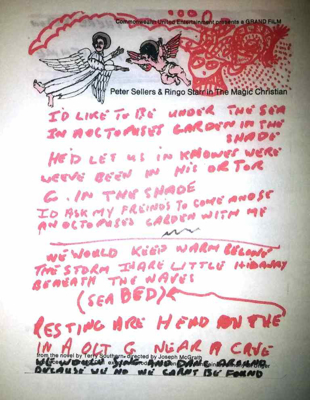 Commonwealth United Entertainment presents a GRAND FILM
Peter Sellers & Ringo Starr in The Magic Christian
I'D LIKE TO BE UNDER THE SEA
IN A OCTOPUSES GARDEN IN THE
SHADE
HE'D LET US IN KNOWES WERE
WEEVE BEEN IN HIS OR TOR
G. IN THE SHADE
ID ASK MY FREINDS TO COME AN SE
AN OCTOPUSES GARDEN WITH ME
WE WOULD KEEP WARM BELOW
THE STORM IN ARE LITTLE HIDAWAY
BENEATH THE WAVES
(SEA BED)
RESTING ARE HEAD ON THE
IN A OCT G NEAR A CAVE
from the novel by Terry Southern directed by Joseph McGrath
WE WOULD SING AND DANC AROUND
BECAUSE WE NO WE CAN'T BE FOUND